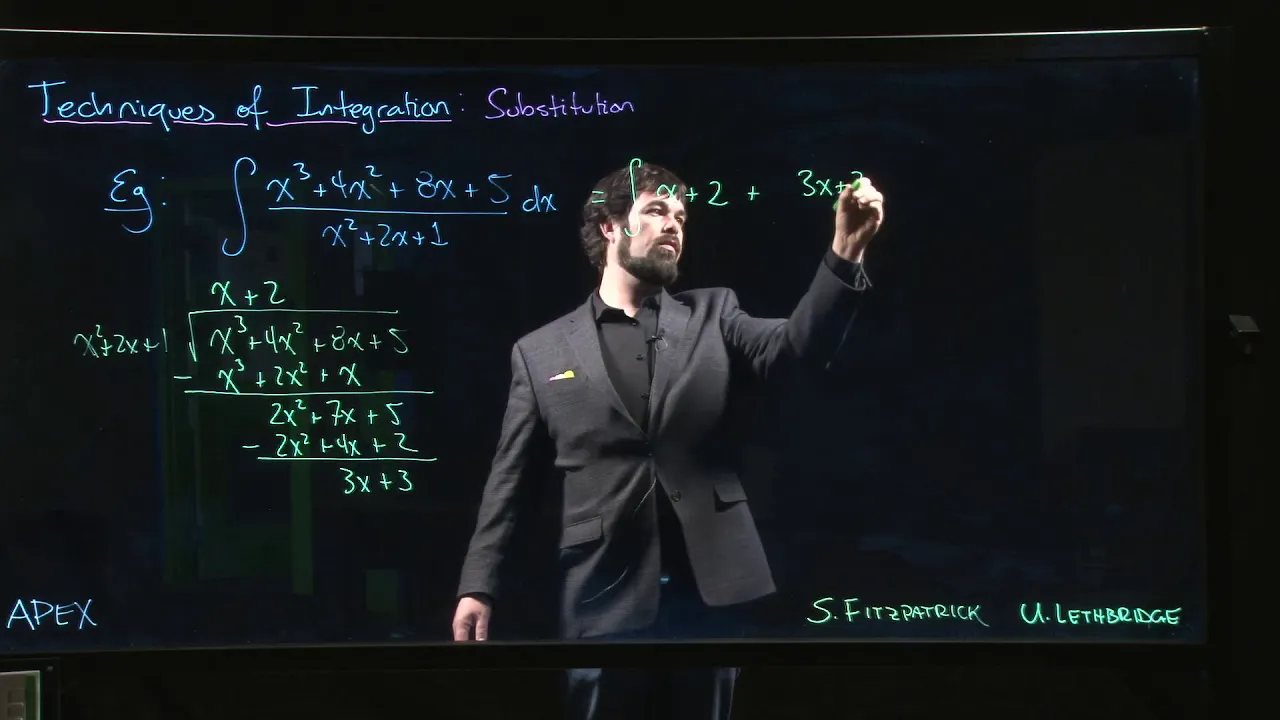 Techniques of Integration: Substitution
Eg: ∫ x³+4x²+8x+5 / x²+2x+1 dx = ∫ x+2 + 3x+3
x+2
x²+2x+1 √ x³+4x²+8x+5
- x³+2x²+x
2x²+7x+5
- 2x²+4x+2
3x+3
APEX
S. FITZPATRICK U. LETHBRIDGE